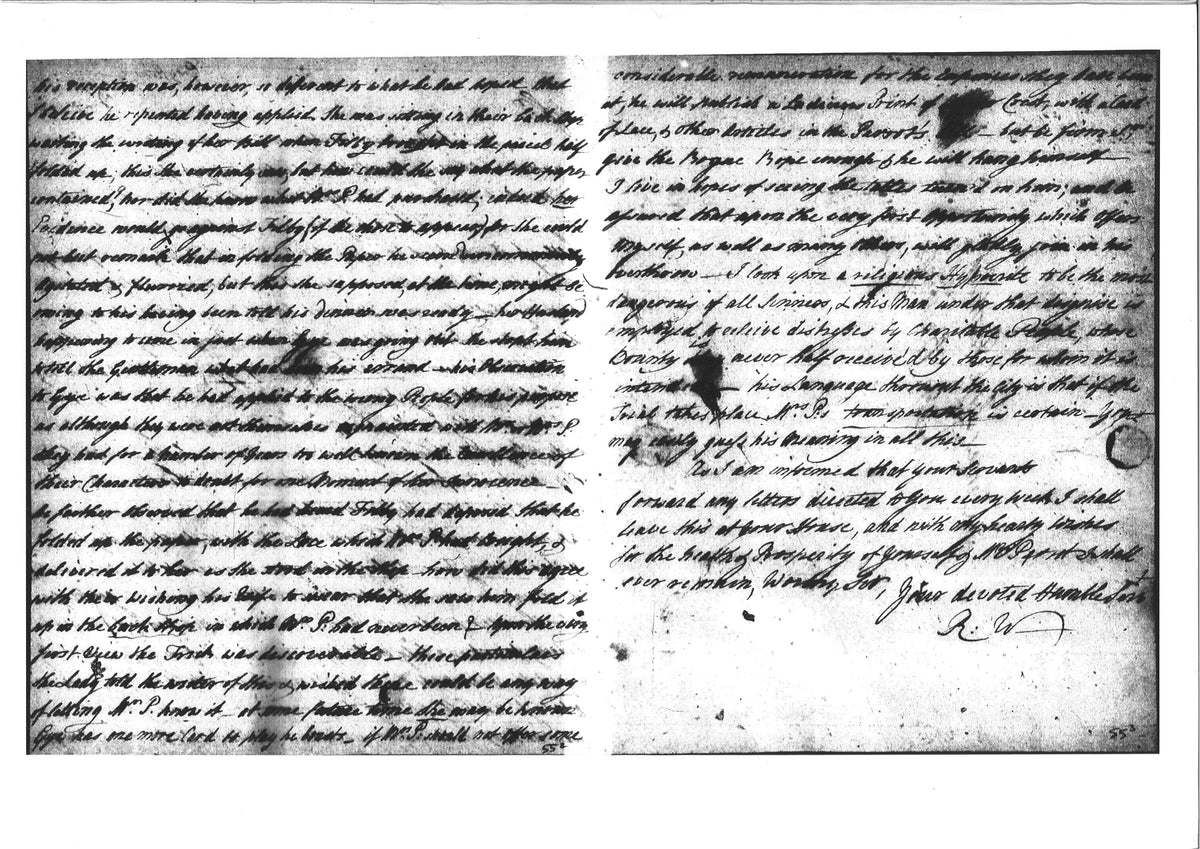 his reception was, however, so different to what he had hoped that
I believe he repented having applied. She was sitting in their back shop
waiting the writing of her Bill when Filby brought in the parcel half
folded up, this she certainly saw, but how could she say what the paper
contained? nor did she know what Mrs. P. had purchased; indeed her
Evidence would go against Filby (if she were to appear) for she could
not but remark that in folding the Paper he seem'd uncommonly
agitated & flurried, but this she supposed, at the time, might be
owing to his having been told his dinner was ready – her Husband
happening to come in just when Gye was going out she stopt him
to tell the Gentleman what had been his errand – his Observation
to Gye was that he had applied to the wrong People for his purpose
as although they were not themselves acquainted with Mr. & Mrs. P.
they had for a number of Years too well known the Excellence of
their Characters to doubt for one Moment of her Innocence –
he further observed that he had found Filby had deposed that he
folded up the paper, with the Lace which Mrs. P. had bought, &
delivered it to her as she stood in the Shop – how did this agree
with their wishing his Wife to swear that she saw him fold it
up in the back Shop in which Mrs. P. had never been? – Upon the very
first View the Trick was discoverable – these particulars
the Lady told the writer of this & wished there could be any way
of letting Mrs. P. know it – at some future time she may be known
Gye has one more Card to play he boasts – if Mr. P. will not offer some
55²
considerable remuneration for the Expences they have been
at, he will Publish a Ludicrous Print of Crest, with a Card
of lace, & other Articles in the Parrot's Bill – but be firm
give the Rogue Rope enough & he will hang himself
I live in hopes of seeing the tables turn'd on him; and be
assured that upon the very first Opportunity which Offers
Myself, as well as many others, will gladly join in his
overthrow – I look upon a religious Hypocrite to be the most
dangerous of all Sinners, & this Man under that disguise is
employed to relieve distresses by Charitable People, whose
Bounty never half received by those for whom it is
intended – his Language throughout the City is that if the
Trial takes place Mrs. P's transportation is certain – You
may easily guess his Meaning in all this –
As I am informed that your Servants
forward any letters directed to You every Week I shall
leave this at Your House, and with My hearty Wishes
for the Health & Prosperity of Yourself & Mrs. Perrot I shall
ever remain, Worthy Sir,
Your devoted Humble Servt
R: W
55³